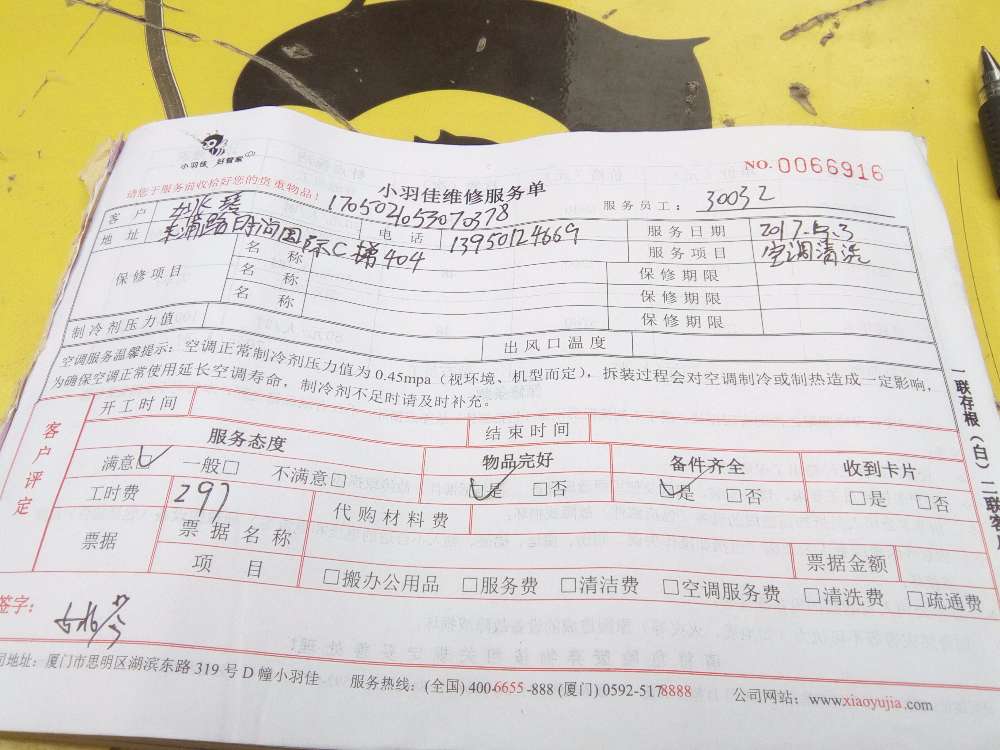 小羽佳 好管家
NO.0066916
请您于服务前收拾好您的贵重物品!
小羽佳维修服务单
170502053070378
服务员工: 30032
客户
电话 13950124669
服务日期 2017.5.3
地址 时尚国际C梯404
服务项目 空调清洗
保修项目
名称
保修期限
名称
保修期限
名称
保修期限
制冷剂压力值
出风口温度
空调服务温馨提示:空调正常制冷剂压力值为0.45mpa(视环境、机型而定),拆装过程会对空调制冷或制热造成一定影响,
为确保空调正常使用延长空调寿命,制冷剂不足时请及时补充。
客户评定
开工时间
结束时间
服务态度
物品完好
备件齐全
收到卡片
满意☑ 一般□ 不满意□
☑是 □否
☑是 □否
□是 □否
工时费 297
代购材料费
票据
票据名称
票据金额
项目
□搬办公用品 □服务费 □清洁费 □空调服务费 □清洗费 □疏通费
签字:
司地址:厦门市思明区湖滨东路319号D幢小羽佳
服务热线:(全国)400-6655-888(厦门)0592-5178888
公司网站:www.xiaoyujia.com
一联存根(白)二联客户